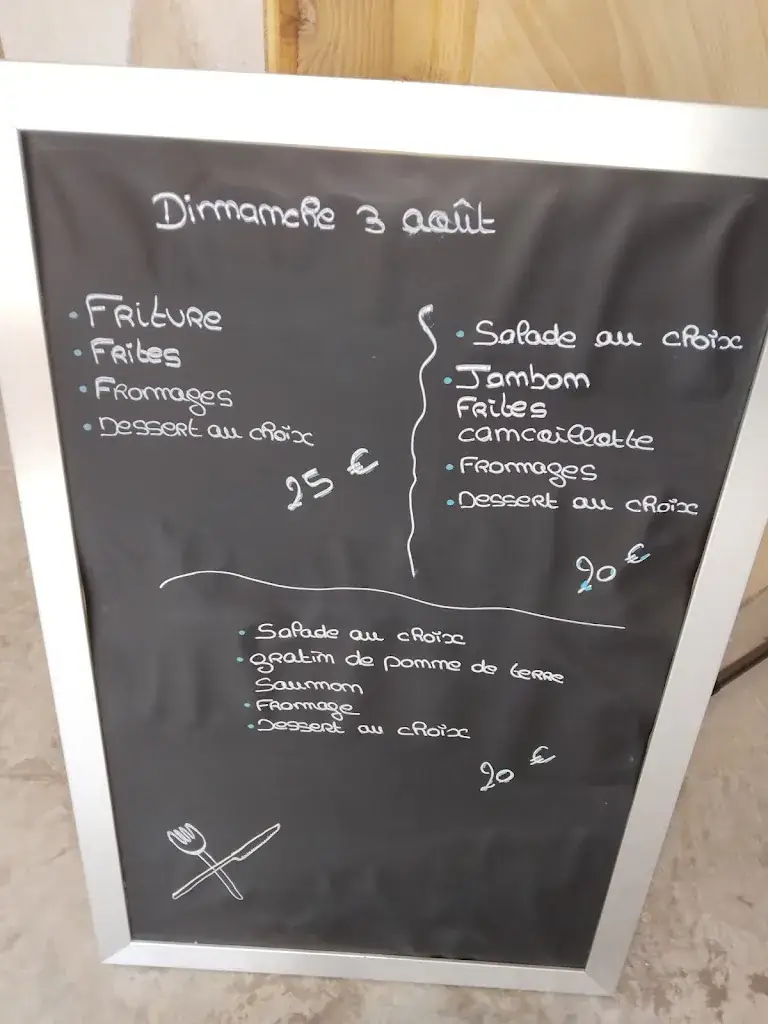 Dimanche 3 août
• Friture
• Frites
• Fromages
• Dessert au choix
25 €
• Salade au choix
• Jambon
Frites
cancoillotte
• Fromages
• Dessert au choix
20 €
• Salade au choix
• gratin de pomme de terre
Saumon
• Fromage
• Dessert au choix
20 €